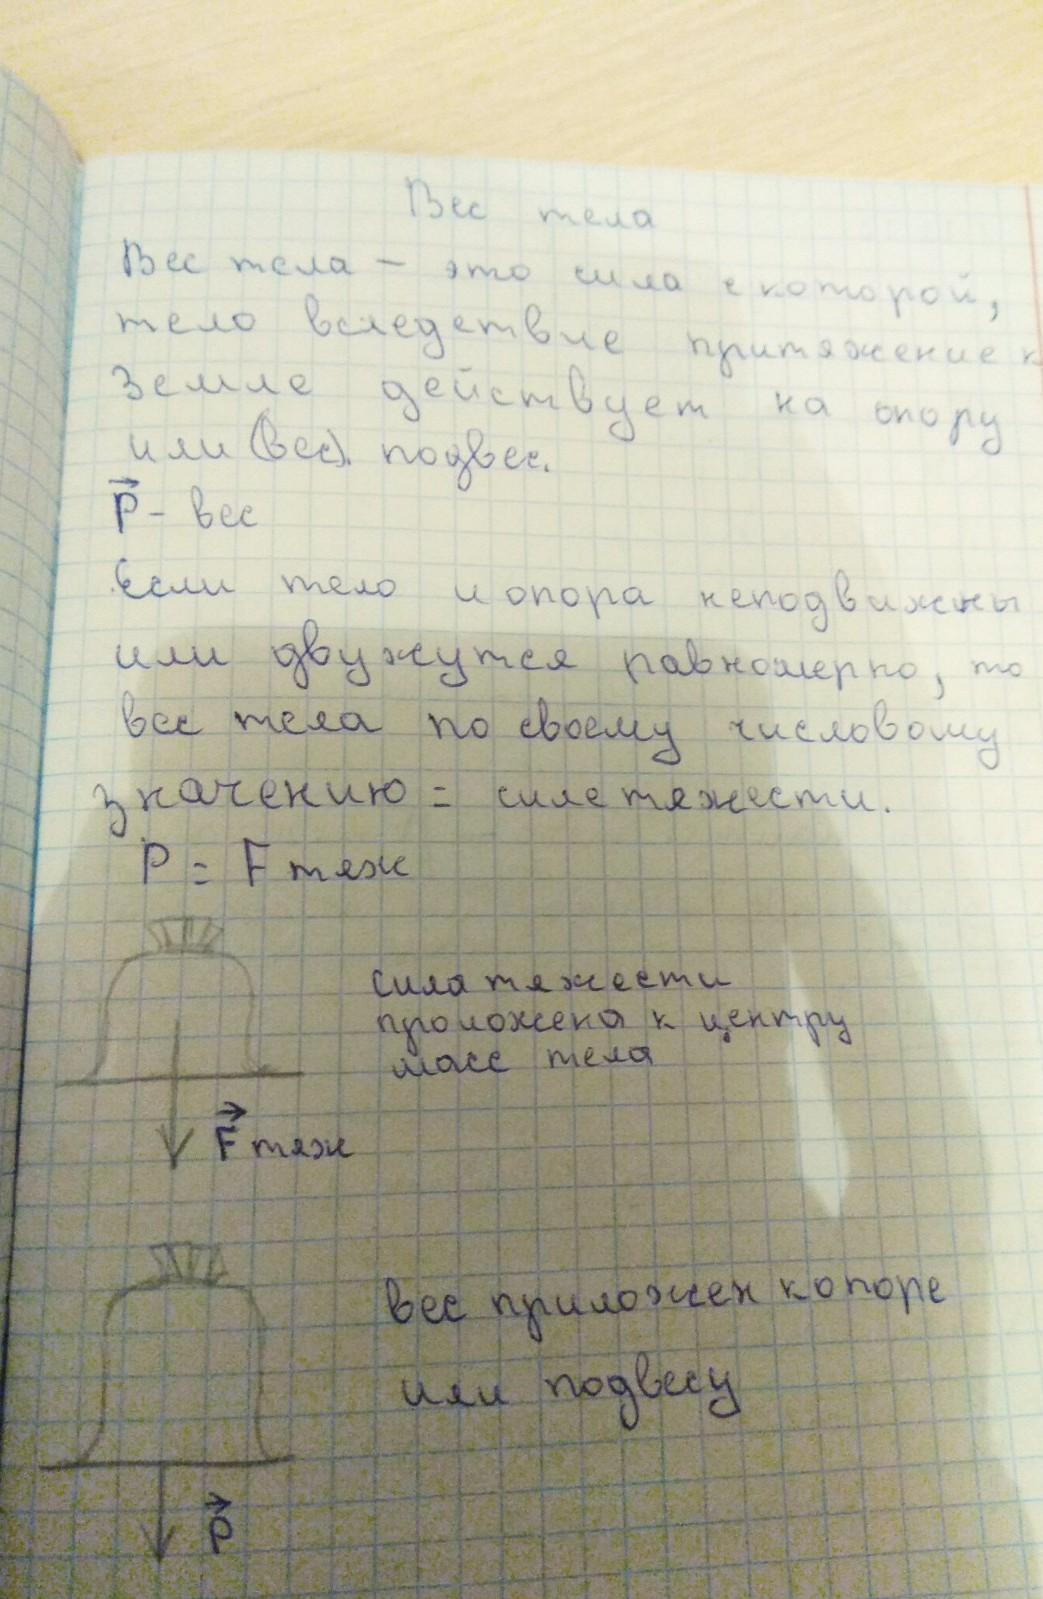 Вес тела
Вес тела – это сила с которой,
тело вследствие притяжение к
Земле действует на опору
или (вес). подвес.
P⃗ – вес
Если тело и опора неподвижны
или двужутся равномерно, то
вес тела по своему числовому
значению = силе тяжести.
P = F тяж
сила тяжести
проложена к центру
масс тела
F⃗ тяж
вес приложен к опоре
или подвесу
P⃗